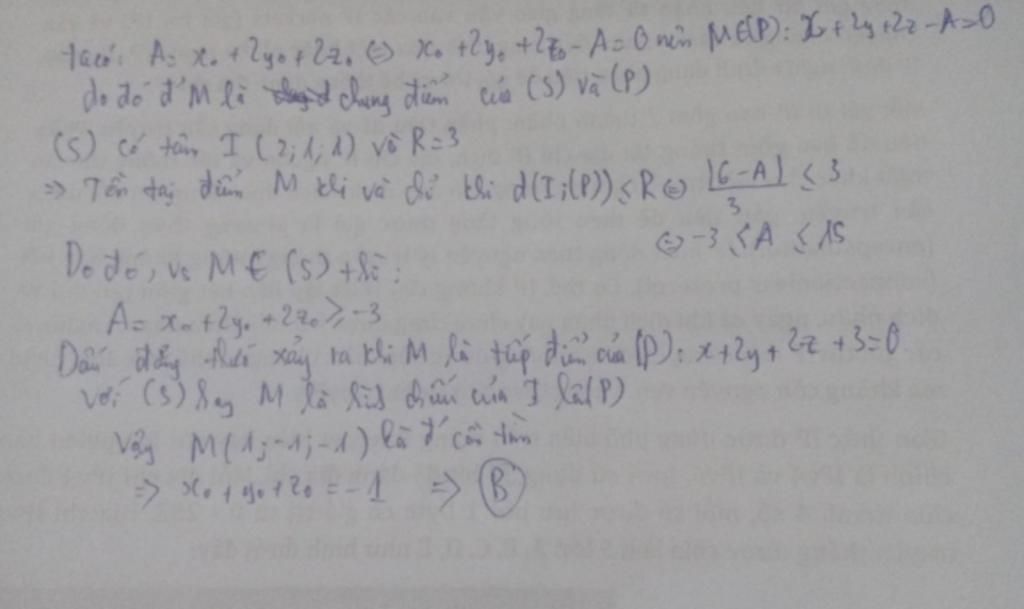 ta có: A = x₀ + 2y₀ + 2z₀ ⇔ x₀ + 2y₀ + 2z₀ - A = 0 nên M ∈ (P): x + 2y + 2z - A = 0
do đó đ' M là chung điểm của (S) và (P)
(S) có tâm I (2; 1; 1) và R = 3
⇒ Tồn tại điểm M khi và chỉ khi d(I; (P)) ≤ R ⇔ |6 - A| / 3 ≤ 3
⇔ -3 ≤ A ≤ 15
Do đó, vs M ∈ (S) thì:
A = x₀ + 2y₀ + 2z₀ ≥ -3
Dấu đẳng thức xảy ra khi M là tiếp điểm của (P): x + 2y + 2z + 3 = 0
với (S) hay M là hình chiếu của I lên (P)
Vậy M (1; -1; -1) là đ' cần tìm
⇒ x₀ + y₀ + z₀ = -1 ⇒ B